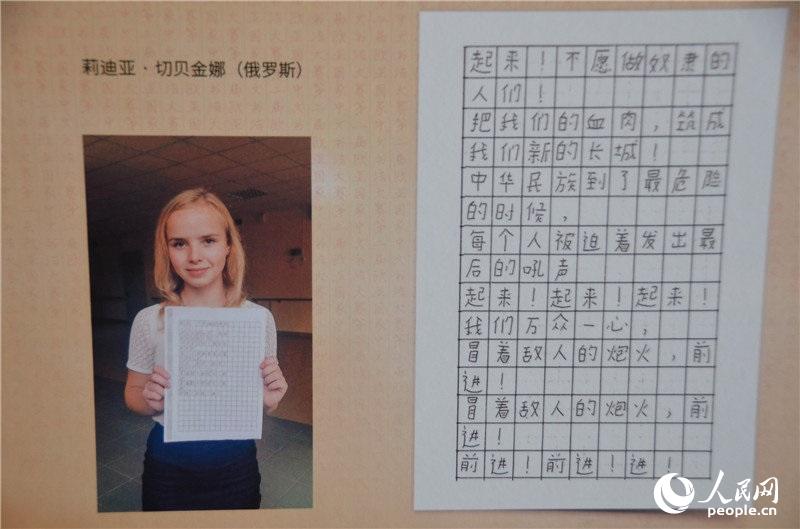 莉迪亚·切贝金娜（俄罗斯）
起来！不愿做奴隶的
人们！
把我们的血肉，筑成
我们新的长城！
中华民族到了最危险
的时候，
每个人被迫着发出最
后的吼声
起来！起来！起来！
我们万众一心，
冒着敌人的炮火，前
进！
冒着敌人的炮火，前
进！
前进！前进！进！
人民网
people.cn